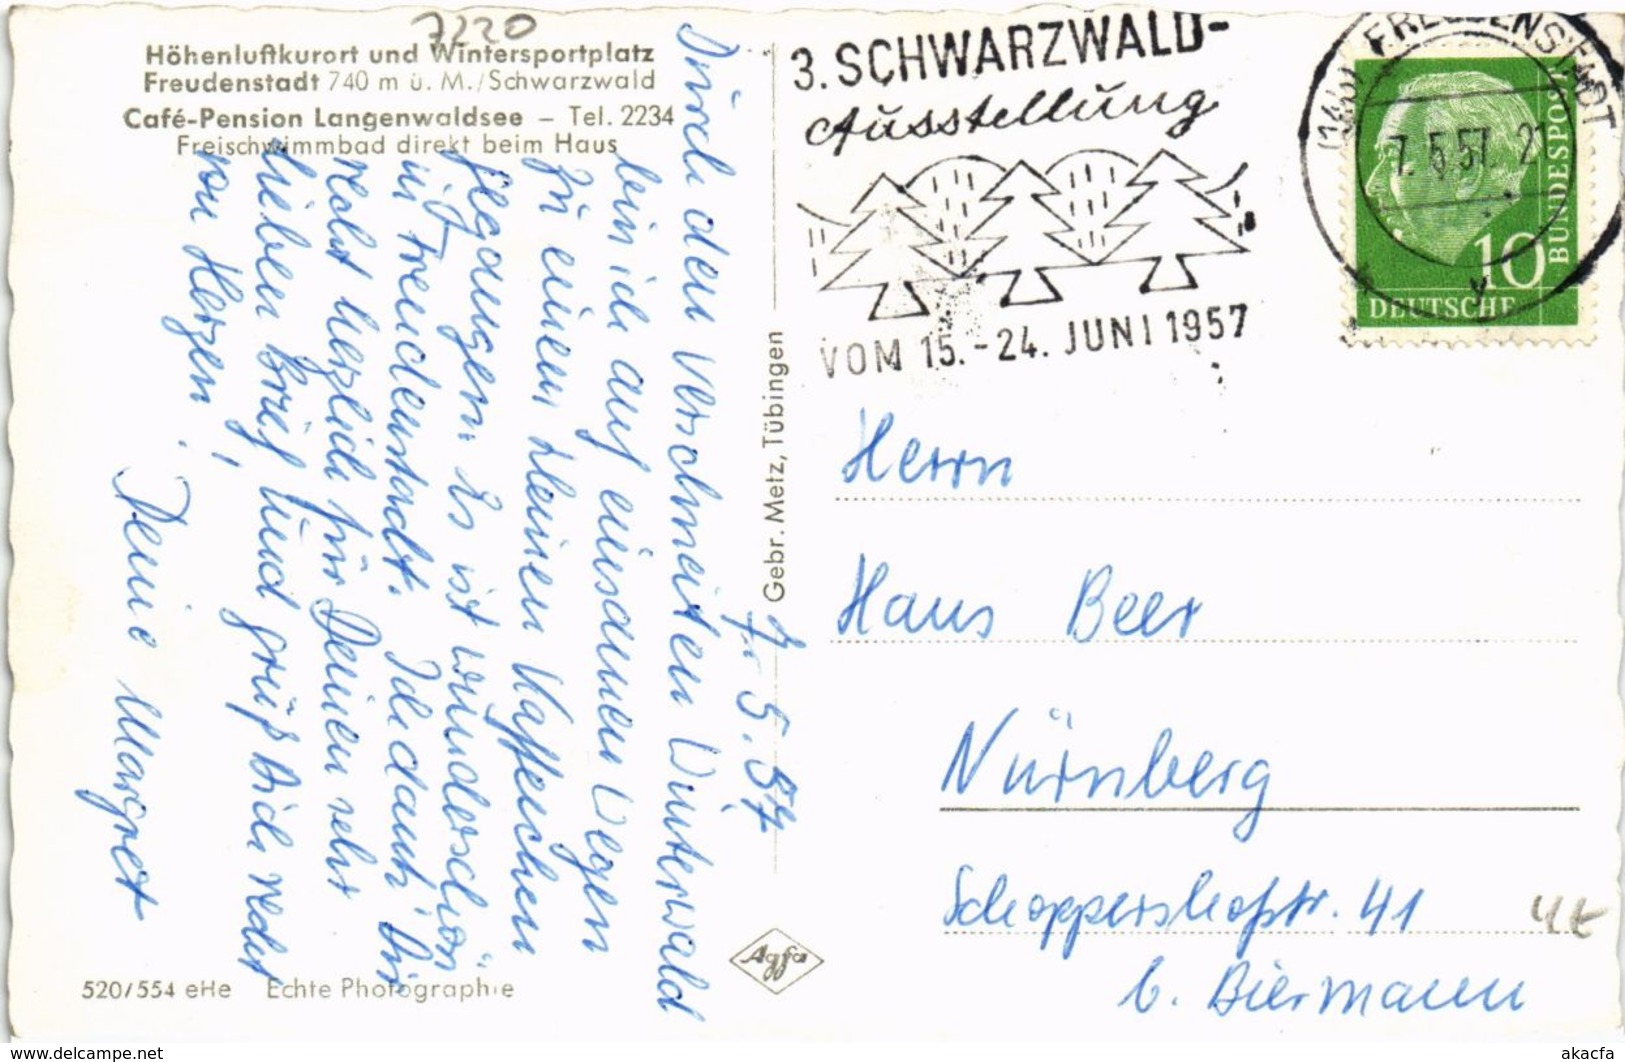 7220
Höhenluftkurort und Wintersportplatz
Freudenstadt 740 m ü. M./Schwarzwald
Café-Pension Langenwaldsee – Tel. 2234
Freischwimmbad direkt beim Haus
7. 5. 57
Durch den verschneiten Winterwald
bin ich auf einsamen Wegen
zu einem kleinen Kaffeechen
gegangen. Es ist wunderschön
in Freudenstadt. Ich dank' Dir
recht herzlich für Deinen sehr
lieben Brief und grüß Dich recht
von Herzen!
Deine Margret
520/554 eHe Echte Photographie
Gebr. Metz, Tübingen
Agfa
3. SCHWARZWALD-
Ausstellung
VOM 15.-24. JUNI 1957
FREUDENSTADT
7. 5. 57. 21
10
DEUTSCHE
BUNDESPOST
Herrn
Hans Beer
Nürnberg
Schoppershofstr. 41
b. Biermann
4t
www.delcampe.net
akacfa